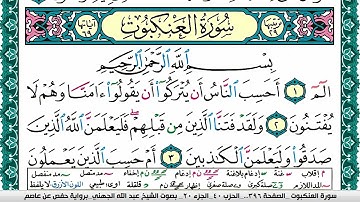 سُورَةُ الْعَنْكَبُوتِ
بِسْمِ اللَّهِ الرَّحْمَٰنِ الرَّحِيمِ
الٓمٓ ١ أَحَسِبَ النَّاسُ أَن يُتْرَكُوا أَن يَقُولُوا ءَامَنَّا وَهُمْ لَا
يُفْتَنُونَ ٢ وَلَقَدْ فَتَنَّا الَّذِينَ مِن قَبْلِهِمْ فَلَيَعْلَمَنَّ اللَّهُ الَّذِينَ
صَدَقُوا وَلَيَعْلَمَنَّ الْكَٰذِبِينَ ٣ أَمْ حَسِبَ الَّذِينَ يَعْمَلُونَ
سورة العنكبوت، الصفحة ٣٩٦، الحزب ٤٠، الجزء ٢٠ ـ بصوت الشيخ عبد الله الجهني برواية حفص عن عاصم